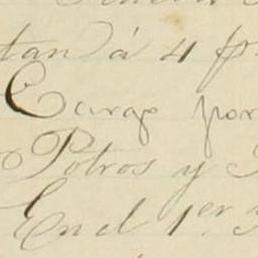 tan á 4 p
Cargo por
Potros y
En el 1er